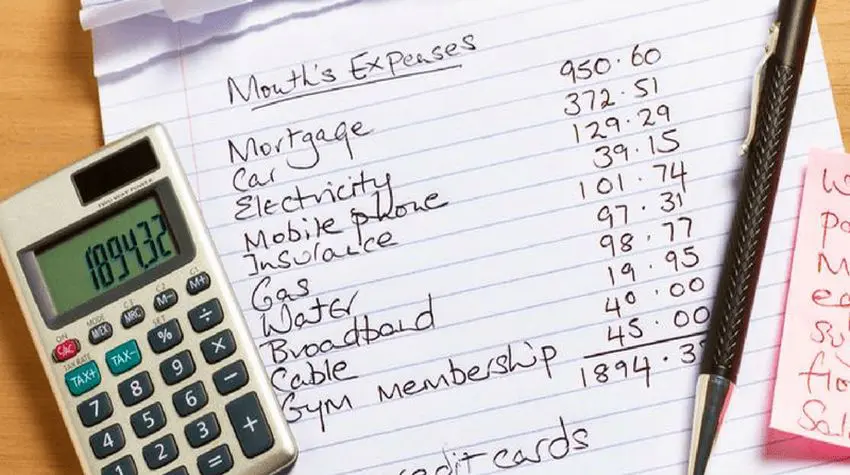 Month's Expenses
Mortgage 950.60
Car 372.51
Electricity 129.29
Mobile phone 39.15
Insurance 101.74
Gas 97.31
Water 98.77
Broadband 19.95
Cable 40.00
Gym membership 45.00
1894.3
credit cards
TWO WAY POWER
1894.32
ON MODE C3 C2 C1
C/AC M/EX MRC M- M+
TAX RATE SET
TAX+ TAX- % ÷
7 8 9 ×
4 5 6 −
1 2 3 +
=